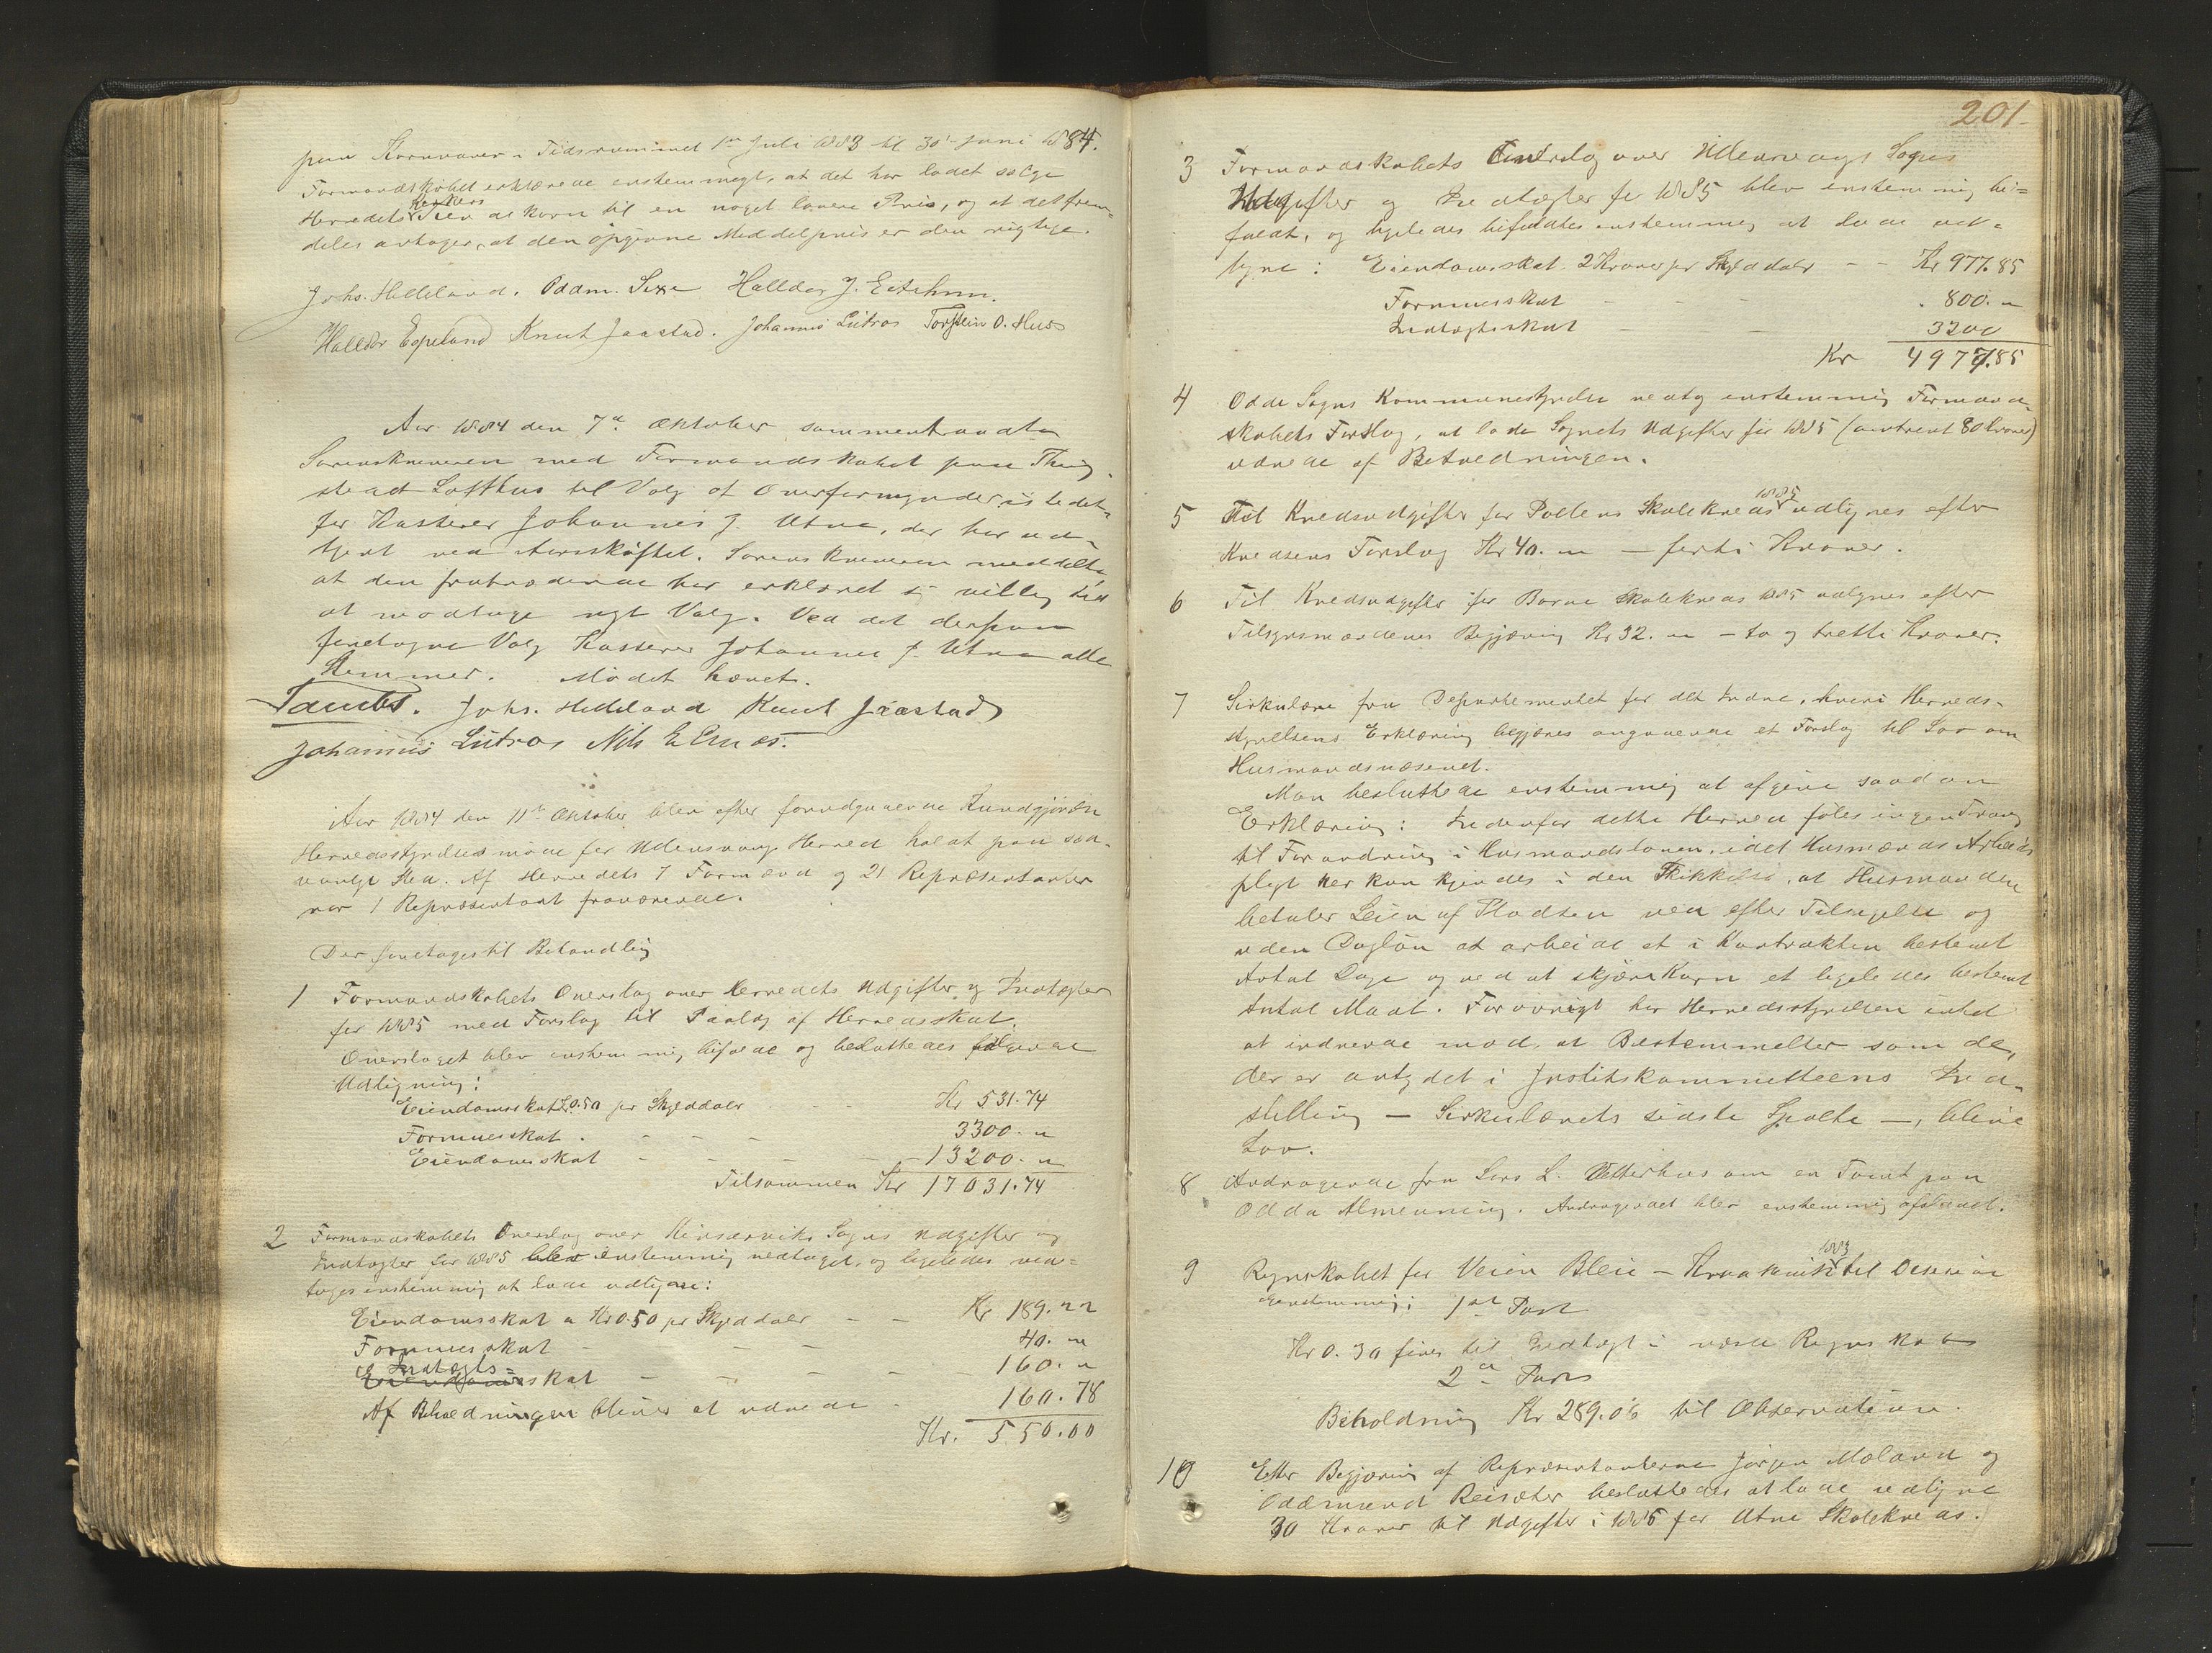 paa Kornvarer i Tidsrummet 1ste Juli 1883 til 30te Juni 1884.
Formandskabet erklærede enstemmigt, at det har ladet sælge
Herredets Kirkers Tiendekorn til en noget lavere Pris, og at det frem-
deles antager, at den opgivne Middelpris er den rigtige.
Johs. Helleland. Oddm. Sexe Halldor J. Eitrheim.
Halldor Espeland Knut Jaastad. Johannes Lutro Torstein O. Hus
Aar 1884 den 7de Oktober sammentraadte
Sorenskriveren med Formandskabet paa Thing-
sted Lofthus til Valg af Overformynder istedet-
for Kasserer Johannes J. Utne, der har ud-
tjent ved Aarsskiftet. Sorenskriveren meddelte,
at den fratrædende har erklæret sig villig til
at modtage nyt Valg. Ved det derpaa
foretagne Valg Kasserer Johannes J. Utne alle
Stemmer. Mødet hævet.
Johs. Helleland Knut Jaastad
Johannes Lutro Nils E.
Aar 1884 den 11te Oktober blev efter forudgaaende Kundgjørelse
Herredsstyrelsesmøde for Ullensvang Herred holdt paa sed-
vanlige Sted. Af Herredets 7 Formænd og 21 Repræsentanter
var 1 Repræsentant fraværende.
Der foretages til Behandling
1 Formandskabets Overslag over Herredets Udgifter og Indtægter
for 1885 med Forslag til Paalæg af Herredsskat.
Overslaget blev enstemmig bifaldt og besluttedes følgende
Udligning:
Eiendomsskat 0.50 pr Skylddaler - - Kr 531.74
Formuesskat - - - 3300. "
Eiendomsskat - - - 13200. "
Tilsammen Kr 17031.74
2 Formandskabets Overslag over Kinserviks Sogns Udgifter og
Indtægter for 1885 blev enstemmig vedtaget, og ligeledes ved-
toges enstemmig at lade udligne:
Eiendomsskat a Kr 0.50 pr Skylddaler - - Kr 189.22
Formuesskat - - - 40. "
Indtægts-
Eiendomsskat - - - - 160. "
Af Beholdningen bliver at udrede - 160.78
Kr. 550.00
201
3 Formandskabets Overslag over Ullensvangs Sogns
Udgifter og Indtægter for 1885 blev enstemmig bi-
faldt, og ligeledes bifaldtes enstemmig at lade ud-
ligne: Eiendomsskat 2 Kroner pr Skylddaler - - Kr 977.85
Formuesskat - - - 800. "
Indtægtsskat - - 3200
Kr 4977.85
4 Odde Sogns Kommunestyrelse vedtog enstemmig Formand-
skabets Forslag, at lade Sognets Udgifter for 1885 (omtrent 80 Kroner)
udrede af Beholdningen.
5 Til Kredsudgifter for Pollens Skolekreds 1885 udlignes efter
Kredsens Forslag Kr 40. " - førti Kroner.
6 Til Kredsudgifter for Borve Skolekreds 1885 udlignes efter
Tilsynsmændenes Begjæring Kr 32. " - to og tretti Kroner.
7 Sirkulære fra Departementet for det Indre, hvori Herreds-
styrelsens Erklæring begjæres angaaende et Forslag til Lov om
Husmandsvæsenet.
Man besluttede enstemmig at afgive saadan
Erklæring: Indenfor dette Herred føles ingen Trang
til Forandring i Husmandsloven, idet Husmænds Arbeids-
pligt her kun kjendes i den Skikkelse, at Husmanden
betaler Leien af Pladsen ved efter Tilsigelse og
uden Dagløn at arbeide et i Kontrakten bestemt
Antal Dage og ved at skjære Korn et ligeledes bestemt
Antal Maal. Forøvrigt har Herredsstyrelsen intet
at indvende mod, at Bestemmelser som de,
der er antydet i Justitskommitteens Ind-
stilling - Sirkulærets sidste Spalte -, blive
Lov.
8 Andragende fra Lars L. om en Tomt paa
Odda Almenning. Andragendet blev enstemmig afslaaet.
9 Regnskabet for Veien Bleie - 1883 til Decision
Enstemmig: 1ste Post
Kr 0.30 føres til Indtægt i næste Regnskab
2den Post
Beholdning Kr 289.06 til Observation.
10 Efter Begjæring af Repræsentanterne Jørgen Mæland og
Oddmund Reisæter besluttedes at lade udligne
30 Kroner til Udgifter i 1885 for Utne Skolekreds.